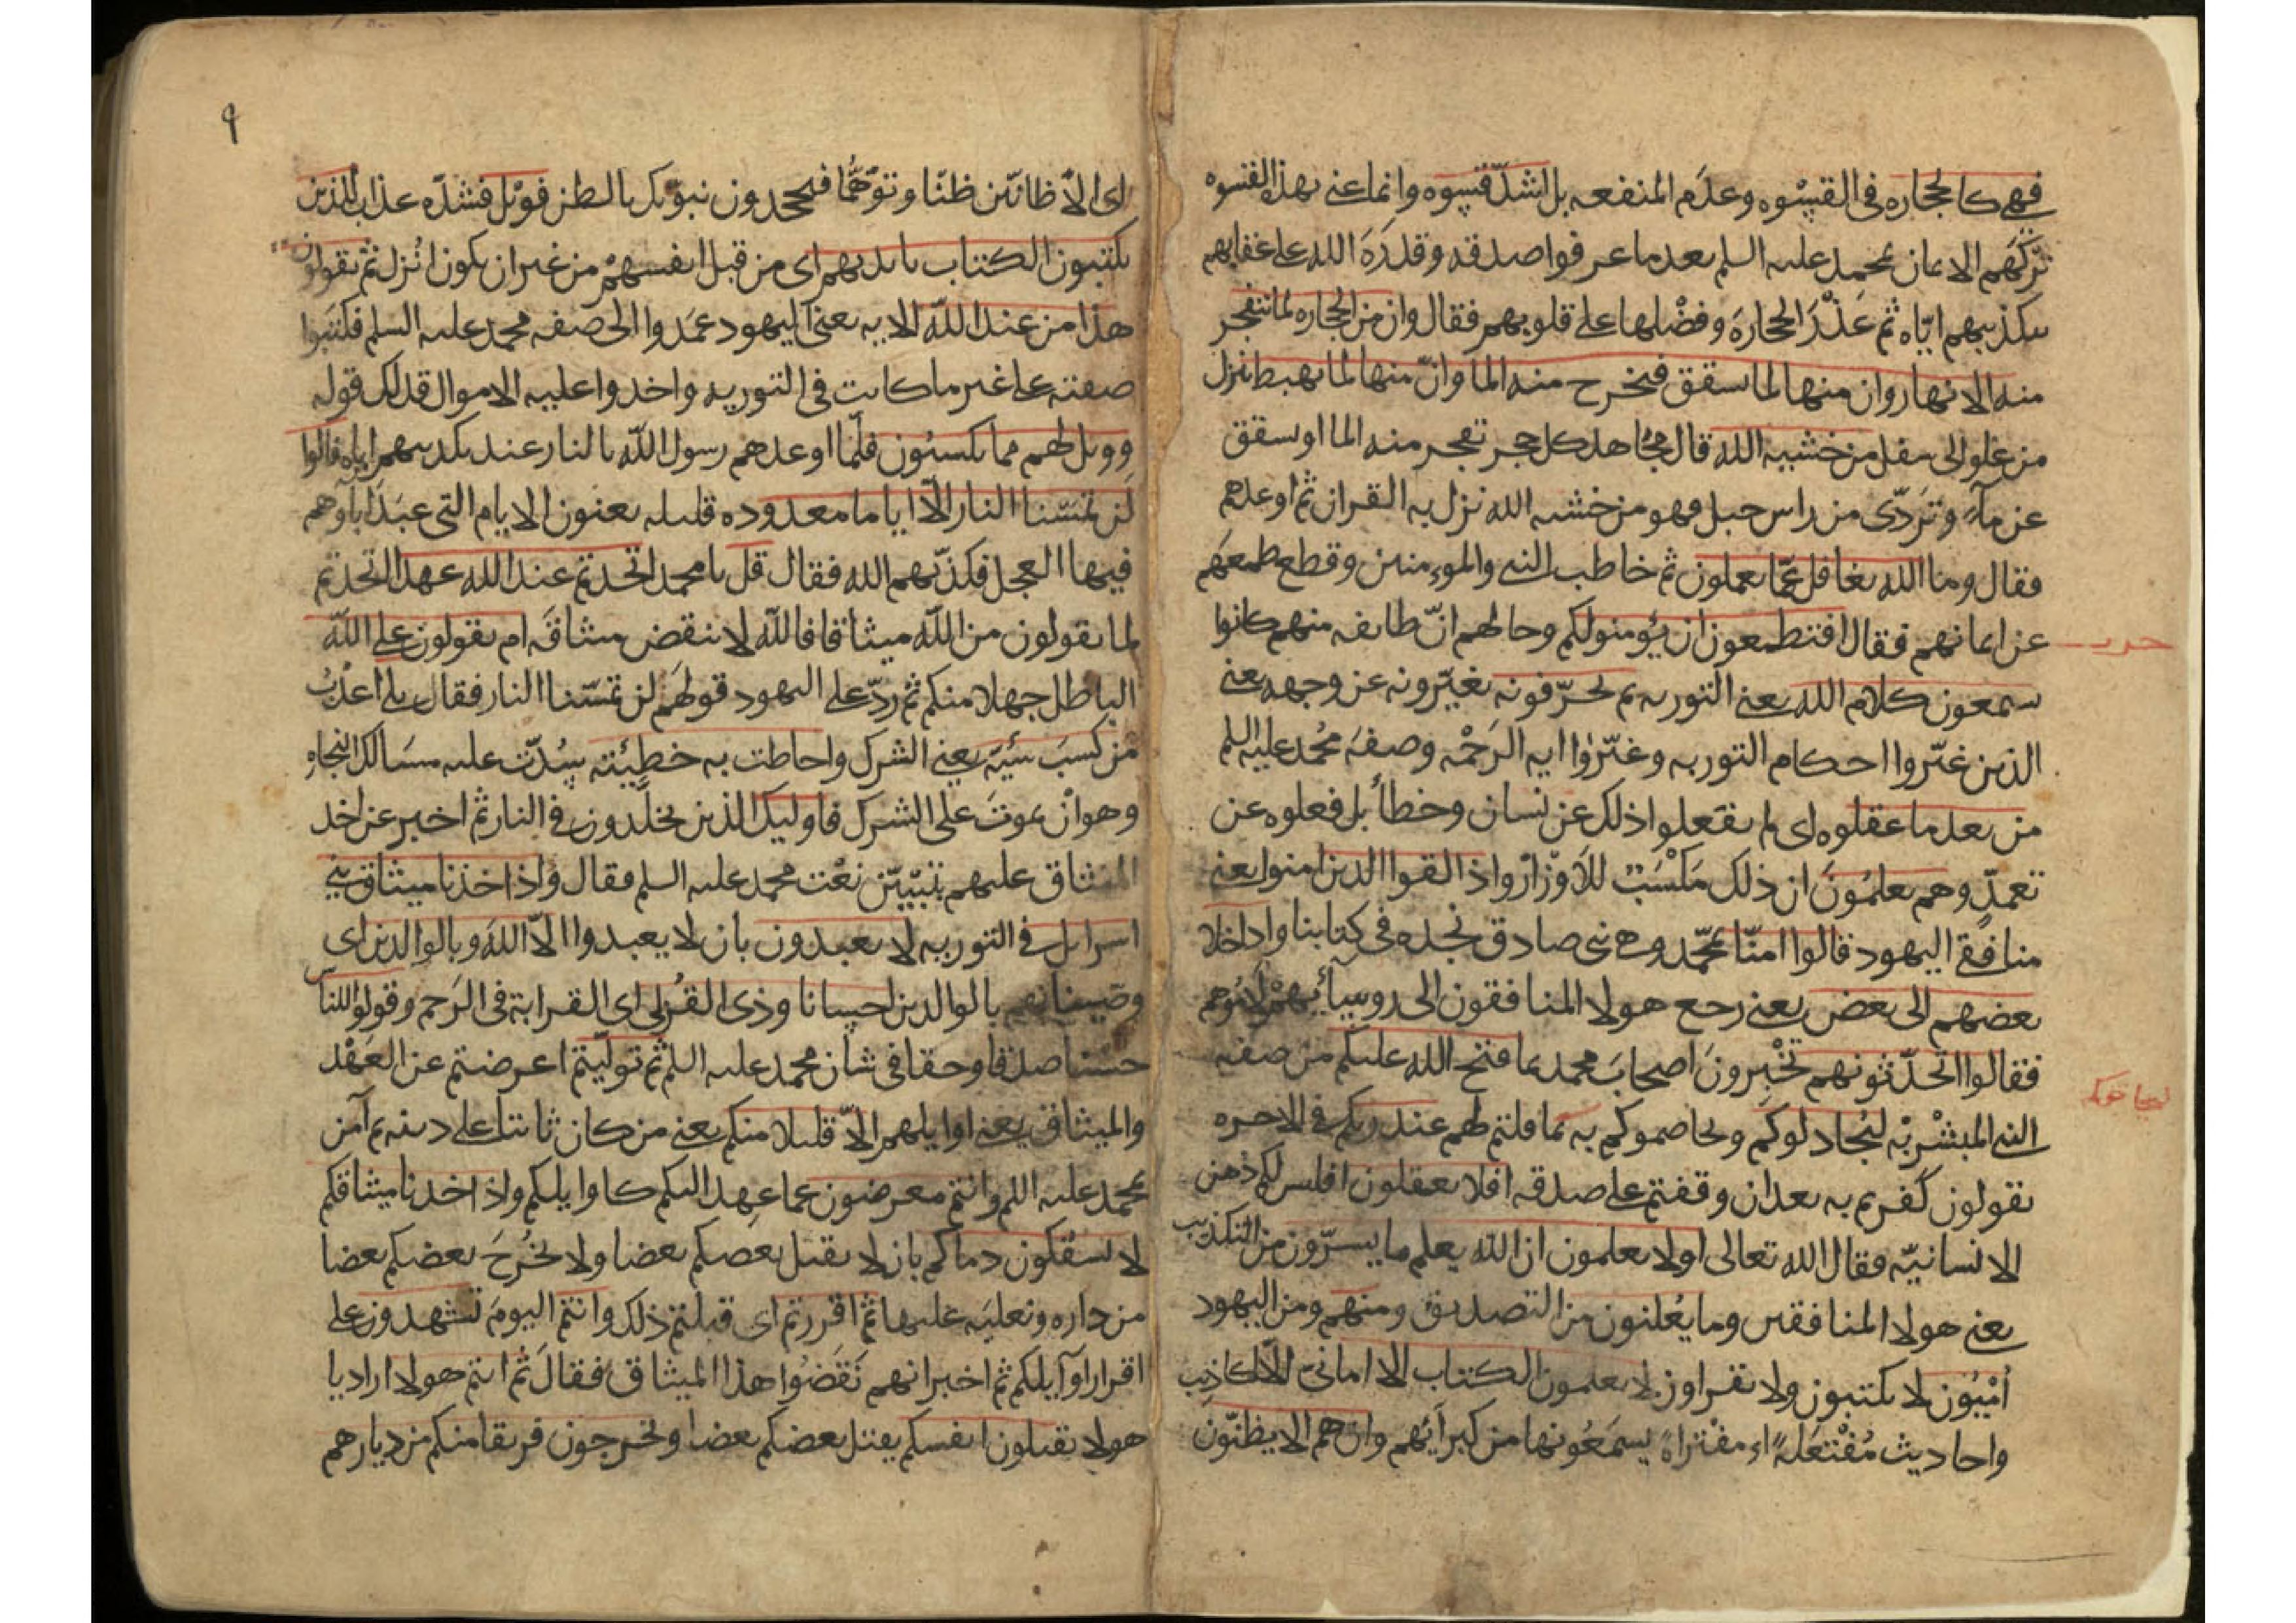 فهى كالحجاره فى القسوه وعدم المنفعه بل اشد قسوه وانما عنى بهذه القسوه
تركهم الايمان بمحمد عليه السلم بعد ما عرفوا صدقه وقدره الله على عقابهم
بتكذيبهم اياه ثم عذر الحجاره وفضلها على قلوبهم فقال وان من الحجاره لما يتفجر
منه الانهار وان منها لما يشقق فيخرج منه الما وان منها لما يهبط ينزل
من علو الى سفل من خشيه الله قال مجاهد كل حجر تفجر منه الما او تشقق
عن مآء وتردى من راس جبل فهو من خشيه الله نزل به القران ثم اوعدهم
فقال وما الله بغافل عما يعملون ثم خاطب النبى والمومنين وقطع طمعهم
عن ايمانهم فقال افتطمعون ان يؤمنوا لكم وحالهم ان طايفه منهم كانوا
يسمعون كلام الله يعنى التوريه ثم يحرفونه يغيرونه عن وجهه يعنى
الذين غيروا احكام التوريه وغيروا ايه الرجم وصفه محمد عليه السلم
من بعد ما عقلوه اى لم يفعلوا ذلك عن نسيان وخطأ بل فعلوه عن
تعمد وهم يعلمون ان ذلك مكسب للاوزار واذا لقوا الذين امنوا يعنى
منافقى اليهود قالوا امنا بمحمد وهو نبى صادق نجده فى كتابنا واذا خلا
بعضهم الى بعض يعنى رجع هولا المنافقون الى روسائهم لاموهم
فقالوا اتحدثونهم تخبرون اصحاب محمد بما فتح الله عليكم من صفه
النبى المبشر به ليجادلوكم ويخاصموكم به بما قلتم لهم عند ربكم فى الاخره
يقولون كفرتم به بعد ان وقفتم على صدقه افلا تعقلون افليس لكم ذهن
الانسانيه فقال الله تعالى اولا يعلمون ان الله يعلم ما يسرون من التكذيب
يعنى هولا المنافقين وما يعلنون من التصديق ومنهم ومن اليهود
اميون لا يكتبون ولا يقراون لا يعلمون الكتاب الا امانى الا اكاذيب
واحاديث مفتعله اى مفتراة يسمعونها من كبرآئهم وان هم الا يظنون
٩
اى الا ظانين ظنا وتوهما فيجحدون نبوتك بالظن فويل فشده عذاب للذين
يكتبون الكتاب بايديهم اى من قبل انفسهم من غير ان يكون انزل ثم يقولون
هذا من عند الله الايه يعنى اليهود عمدوا الى صفه محمد عليه السلم فكتبوا
صفته على غير ما كانت فى التوريه واخذوا عليه الاموال فذلك قوله
وويل لهم مما يكسبون فلما اوعدهم رسول الله بالنار عند تكذيبهم اياه قالوا
لن تمسنا النار الا اياما معدوده قليله يعنون الايام التى عبد اباوهم
فيها العجل فكذبهم الله فقال قل يا محمد اتخذتم عند الله عهدا اتخذتم
لما تقولون من الله ميثاقا فالله لا ينقض ميثاقه ام تقولون على الله
الباطل جهلا منكم ثم رد على اليهود قولهم لن تمسنا النار فقال بلى اعذب
من كسب سيئه يعنى الشرك واحاطت به خطيئته سدت عليه مسالك النجاه
وهو ان يموت على الشرك فاوليك الذين يخلدون فى النار ثم اخبر عن اخذ
الميثاق عليهم بتبيين نعت محمد عليه السلم فقال واذ اخذنا ميثاق بنى
اسرايل فى التوريه لا يعبدون بان لا يعبدوا الا الله وبالوالدين اى
وصيناهم بالوالدين احسانا وذى القربى اى القرابة فى الرحم وقولوا للناس
حسنا صدقا وحقا فى شان محمد عليه السلم ثم توليتم اعرضتم عن العهد
والميثاق يعنى اوايلهم الا قليلا منكم يعنى من كان ثابتا على دينه ثم آمن
بمحمد عليه السلم وانتم معرضون عما عهد اليكم كاوايلكم واذ اخذنا ميثاقكم
لا تسفكون دماكم بان لا يقتل بعضكم بعضا ولا يخرج بعضكم بعضا
من داره ويغلبه عليها ثم اقررتم اى قبلتم ذلك وانتم اليوم تشهدون على
اقرار اوآيلكم ثم اخبر انهم نقضوا هذا الميثاق فقال ثم انتم هولا اراد يا
هولا تقتلون انفسكم يقتل بعضكم بعضا وتخرجون فريقا منكم من ديارهم